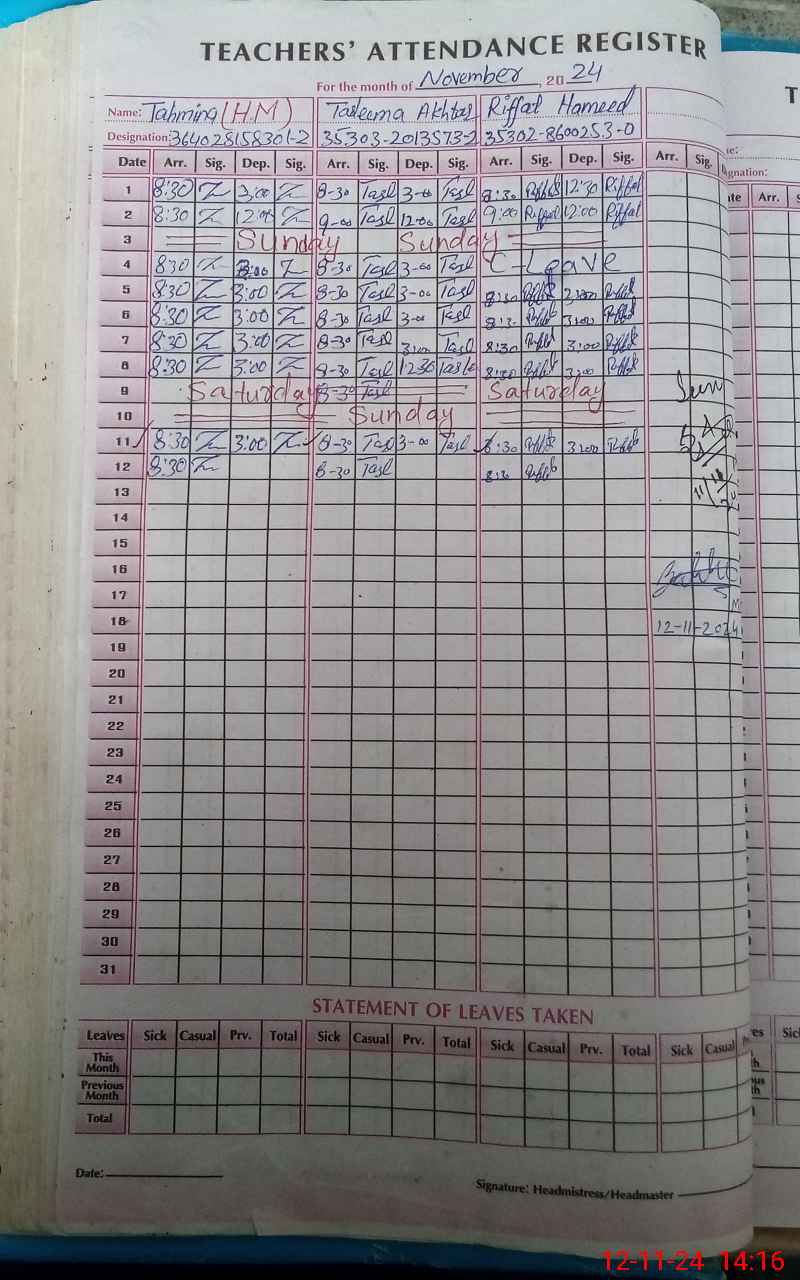 TEACHERS' ATTENDANCE REGISTER
For the month of November, 20 24
Name: Tahmina (H.M) Tasleema Akhtar Riffat Hameed
Designation: 35303-2013573-2 35302-8600253-0
Date Arr. Sig. Dep. Sig. Arr. Sig. Dep. Sig. Arr. Sig. Dep. Sig. Arr. Sig.
1 8:30 3:00 8-30 Tasl 3-00 Tasl 8:30 Riffat 12:30 Riffat
2 8:30 12:00 9-00 Tasl 12:00 Tasl 9:00 Riffat 12:00 Riffat
3 Sunday Sunday
4 8:30 3:00 8-30 Tasl 3-00 Tasl C-Leave
5 8:30 3:00 8-30 Tasl 3-00 Tasl 8:30 Riffat Riffat
6 8:30 3:00 8-30 Tasl 3-00 Tasl Riffat 3:00 Riffat
7 8:30 3:00 8-30 Tasl 3:00 Tasl 8:30 Riffat 3:00 Riffat
8 8:30 3:00 8-30 Tasl 12:30 Tasl 8:30 Riffat 3:00 Riffat
9 Saturday 8-30 Tasl Saturday
10 Sunday
11 8:30 3:00 8-30 Tasl 3-00 Tasl 8:30 Riffat 3:00 Riffat
12 8:30 8-30 Tasl 8:30 Riffat
13
14
15
16
17
18 12-11-2024
19
20
21
22
23
24
25
26
27
28
29
30
31
STATEMENT OF LEAVES TAKEN
Leaves Sick Casual Prv. Total Sick Casual Prv. Total Sick Casual Prv. Total Sick Casual
This Month
Previous Month
Total
Date:
Signature: Headmistress/Headmaster
12-11-24 14:16